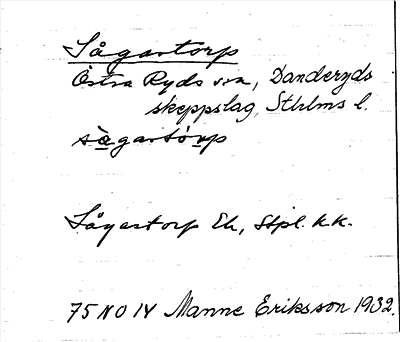 Sågartorp
Östra Ryds sn, Danderyds
skeppslag, Sthlms l.
sågartorp
Sågartorp Eh, Stpl. k.k.
75 NO IV Manne Eriksson 1932.